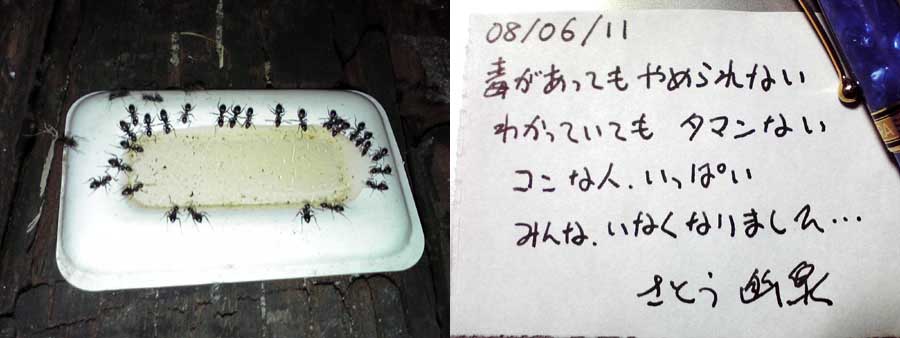 08/06/11
毒があってもやめられない
わかっていても タマンない
コンな人、いっぱい
みんな、いなくなりました…
さとう